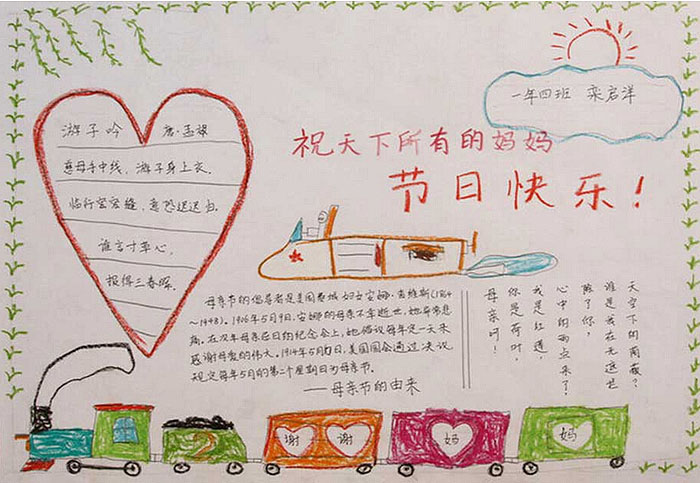 一年四班 栾启洋
游子吟 唐·孟郊
慈母手中线,游子身上衣。
临行密密缝,意恐迟迟归。
谁言寸草心,
报得三春晖。
祝天下所有的妈妈
节日快乐!
母亲节的倡导者是美国费城妇女安娜·查维斯(1864
~1948)。1906年5月9号,安娜的母亲不幸逝世,她非常悲
痛。在次年母亲忌日的纪念会上,她倡议每年定一天来
感谢母爱的伟大。1914年5月日,美国国会通过决议
规定每年5月的第二个星期日为母亲节。
——母亲节的由来
母亲啊!
你是荷叶,
我是红莲,
心中的雨点来了,
除了你,
谁是我在无遮拦
天空下的荫蔽?
谢 谢 妈 妈